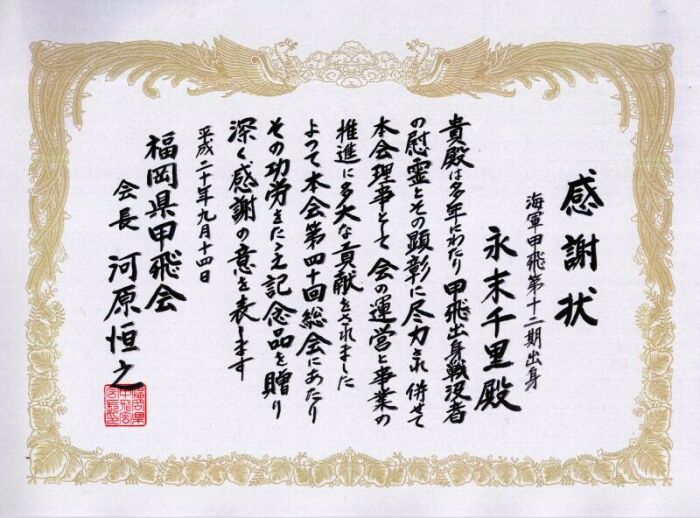 感謝状
海軍甲飛第十二期出身
永末千里殿
貴殿は多年にわたり甲飛出身戦没者
の慰霊とその顕彰に尽力され併せて
本会理事として会の運営と事業の
推進に多大な貢献をされました
よつて本会第四十回総会にあたり
その功労をたゝえ記念品を贈り
深く感謝の意を表します
平成二十年九月十四日
福岡県甲飛会
会長 河原恒之